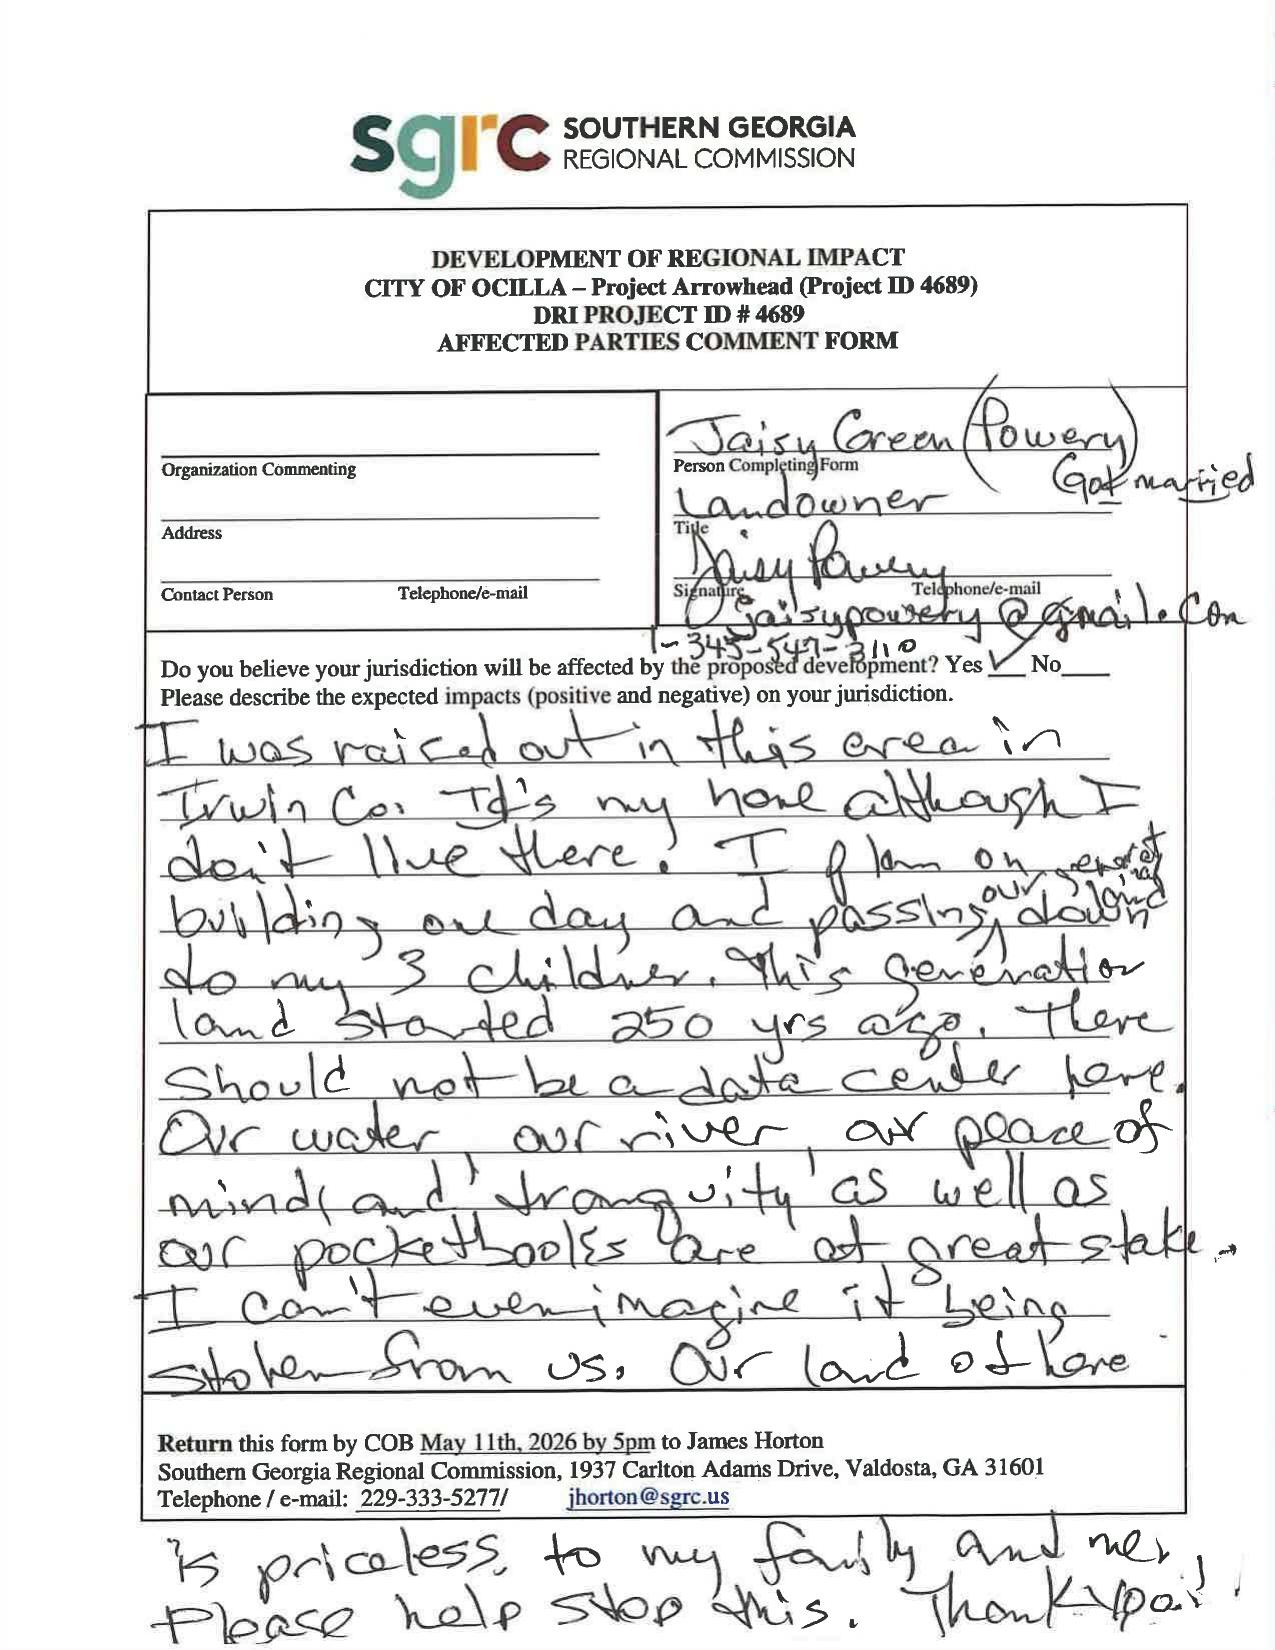 sgrc SOUTHERN GEORGIA
REGIONAL COMMISSION
DEVELOPMENT OF REGIONAL IMPACT
CITY OF OCILLA – Project Arrowhead (Project ID 4689)
DRI PROJECT ID # 4689
AFFECTED PARTIES COMMENT FORM
Organization Commenting
Address
Contact Person Telephone/e-mail
Jaisy Green (Powery)
Person Completing Form
Got married
Landowner
Title
Jaisy Powery
Signature Telephone/e-mail
jaisypowery@gmail.com
1-345-547-3110
Do you believe your jurisdiction will be affected by the proposed development? Yes ✓ No
Please describe the expected impacts (positive and negative) on your jurisdiction.
I was raised out in this area in
Irwin Co. It's my home although I
don't live there. I plan on
building one day and passing our land down
to my 3 children. This generation
land started 250 yrs ago. There
should not be a data center here.
Our water, our river, our peace of
mind, and tranquity as well as
our pocketbooks are at great stake.
I can't even imagine it being
stolen from us. Our land out here
Return this form by COB May 11th, 2026 by 5pm to James Horton
Southern Georgia Regional Commission, 1937 Carlton Adams Drive, Valdosta, GA 31601
Telephone / e-mail: 229-333-5277/ jhorton@sgrc.us
is priceless to my family and me.
Please help stop this. Thank you!